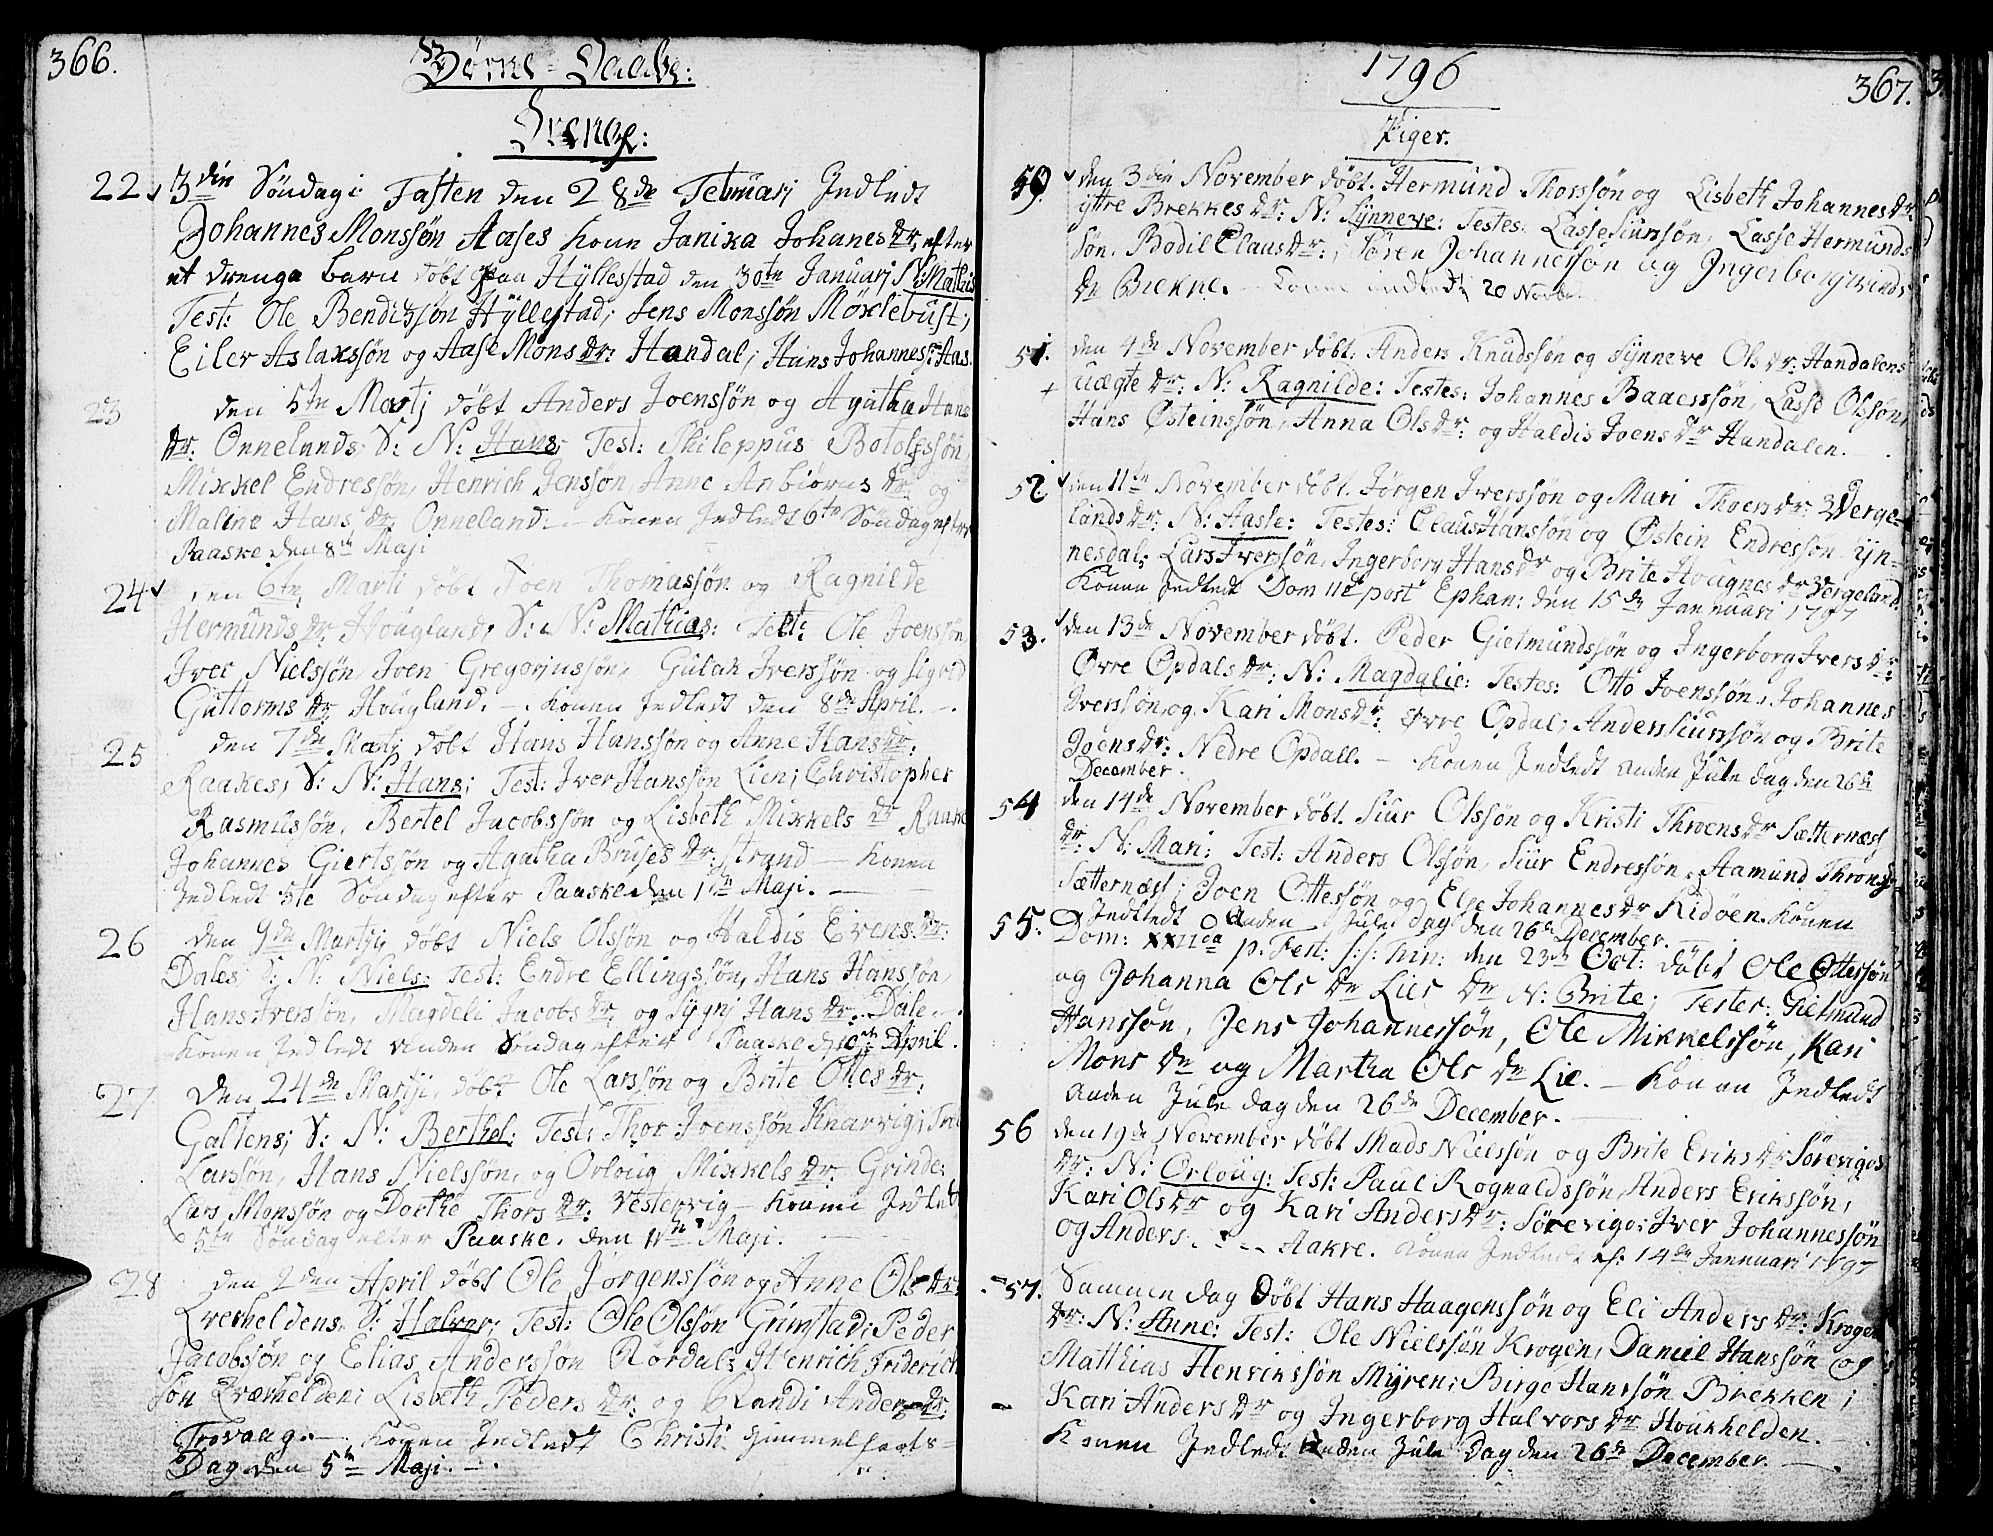 366.
Børne-Daabe:
Drenge:
22. 3die Søndag i Fasten den 28de Februarj Indledt
Johannes Monssøn Aases Kone Janika Johanes dr, efter
et drenge barn døbt paa Hyllestad den 30te Januarj N: Mathis
Test: Ole Bendixsøn Hyllestad; Jens Monssøn Møxlebust;
Eiler Aslaxssøn og Aase Mons dr: Handal; Hans Johannes: Aas.
23 den 5te Martj døbt Anders Joenssøn og Agatha Hans
dr: Onnelands S: N: Hans; Test: Phileppus Botolfssøn,
Mikkel Endressøn, Henrich Jenssøn, Anne Anbiørns dr: og
Maline Hans dr: Onneland. - Konen Indledt 6te Søndag efter
Paaske den 8de Maji
24 den 6te Marti døbt Joen Thomassøn og Ragnilde
Hermunds dr: Hougland, S: N: Mathias: Test: Ole Joenssøn
Iver Nielssøn, Joen Gregorjussøn, Gulak Iverssøn og Sigrid
Guttorms dr: Hougland. - . Konen Indledt den 8de April. -.
25 den 7de Martj døbt Hans Hanssøn og Anne Hans dr:
Raakes, S: N: Hans; Test: Iver Hanssøn Lien; Christopher
Rasmussøn, Bertel Jacobssøn og Lisbeth Mikkels dr Raake
Johannes Giertssøn og Agatha Bruses dr: Strand - Konen
Indledt 5te Søndag efter Paaske den 1te Maji. -
26 den 9de Martji døbt Niels Olssøn og Haldis Evens dr:
Dales S: N: Niels: Test: Endre Ellingssøn, Hans Hanssøn,
Hans Iverssøn, Magdeli Jacobs dr: og Sygni Hans dr: Dale -.
Konen Indledt anden Søndag efter Paaske d: 10de April.
27 Den 24de Martji, døbt Ole Larssøn og Brite Ottes dr:
Galtens; S: N: Berthel: Test: Thor Joenssøn Knarvig;
Larssøn, Hans Nielssøn, og Orloug Mikkels dr: Grinde;
Lars Monssøn og Dorthe Thors dr: Vestervig - Konnen Indledt
5te Søndag efter Paaske, den 1te Maji.
28 den 2den April døbt Ole Jørgenssøn og Anne Ols dr:
Kverheldens, S: Halvor; Test: Ole Olssøn Grimstad; Peder
Jacobssøn og Elias Anderssøn Rørdal; Henrich Friderich
søn Kverhelden; Lisbeth Peders dr: og Randi Anders dr:
Trovaag. -. Konen Indledt Christi Himmelfarts-
Dag den 5te Maji. -.
1796
367.
Piger.
50. den 3die November døbt. Hermund Thorssøn og Lisbeth Johannes dr:
ytre Brekkes dr: N: Synneve: Testes: Lasse Siurssøn, Lasse Hermunds
søn. Bodil Claus dr:, Søren Johannessøn og Ingerborg
dr Brekke. - Konen indledt 20 Novbr.
51. den 4de November døbt. Anders Knudssøn og Synneve Ols dr: Handalens
+ uægte dr: N: Ragnilde: Testes: Johannes Baaessøn, Lasse Olssøn,
Hans Østeinssøn, Anna Ols dr: og Haldis Joens dr Handalen. -
52 den 11te November døbt. Jørgen Iverssøn og Mari Thoers dr: Verge-
lands dr: N: Aasse: Testes: Claus Hanssøn og Østein Endressøn Ryn-
nesdal; Lars Iverssøn, Ingerborg Hans dr og Brite Hougnes dr Vergeland.
Konen Indledt Dom 11de post Ephan: den 15de Jannuari 1797
53. den 13de November døbt. Peder Gietmundssøn og Ingerborg Ivers dr:
Øvre Opdals dr: N: Magdalie: Testes: Otto Joenssøn, Johannes
Iverssøn, og Kari Mons dr: øvre Opdal; Anders Siurssøn og Brite
Joens dr: Nedre Opdall. - Konen Indledt anden Jule dag den 26de
December.
54 den 14de November døbt. Siur Olssøn og Kristi Throens dr Sætternæst
dr: N: Mari: Test: Anders Olssøn, Siur Endressøn, Aamund Throns
Sætternæst; Joen Ottessøn og Else Johannes dr Ridøen. Konen
Indledt Anden Jule dag den 26de December.
55. Dom: XXIIda p. Fest: s: s: Trin: den 23de Oct: døbt Ole Ottessøn
og Johanna Ols dr Lies dr N: Brite; Testes: Gietmund
Hanssøn, Jens Johannessøn, Ole Mikkelssøn, Kari
Mons dr og Martha Ols dr Lie. - Konen Indledt
Anden Jule dag den 26de December. -
56 den 19de November døbt Mads Nielssøn og Brite Eriks dr Sørevigs
dr: N: Orloug: Test: Paul Rognaldssøn, Anders Erikssøn,
Kari Ols dr og Kari Anders dr: Sørevigo; Iver Johannessøn
og Anders - - - Aakre. Konen Indledt d: 14de Jannuari 1797
57. Sammen dag døbt Hans Haagenssøn og Eli Anders dr: Krogen
dr: N: Anne: Test: Ole Nielssøn Krogen, Daniel Hanssøn og
Matthias Henrikssøn Myren; Birge Hanssøn Brekken;
Kari Anders dr og Ingerborg Halvors dr Houkhelden.
Konen Indledt Anden Jule Dag den 26de December. -